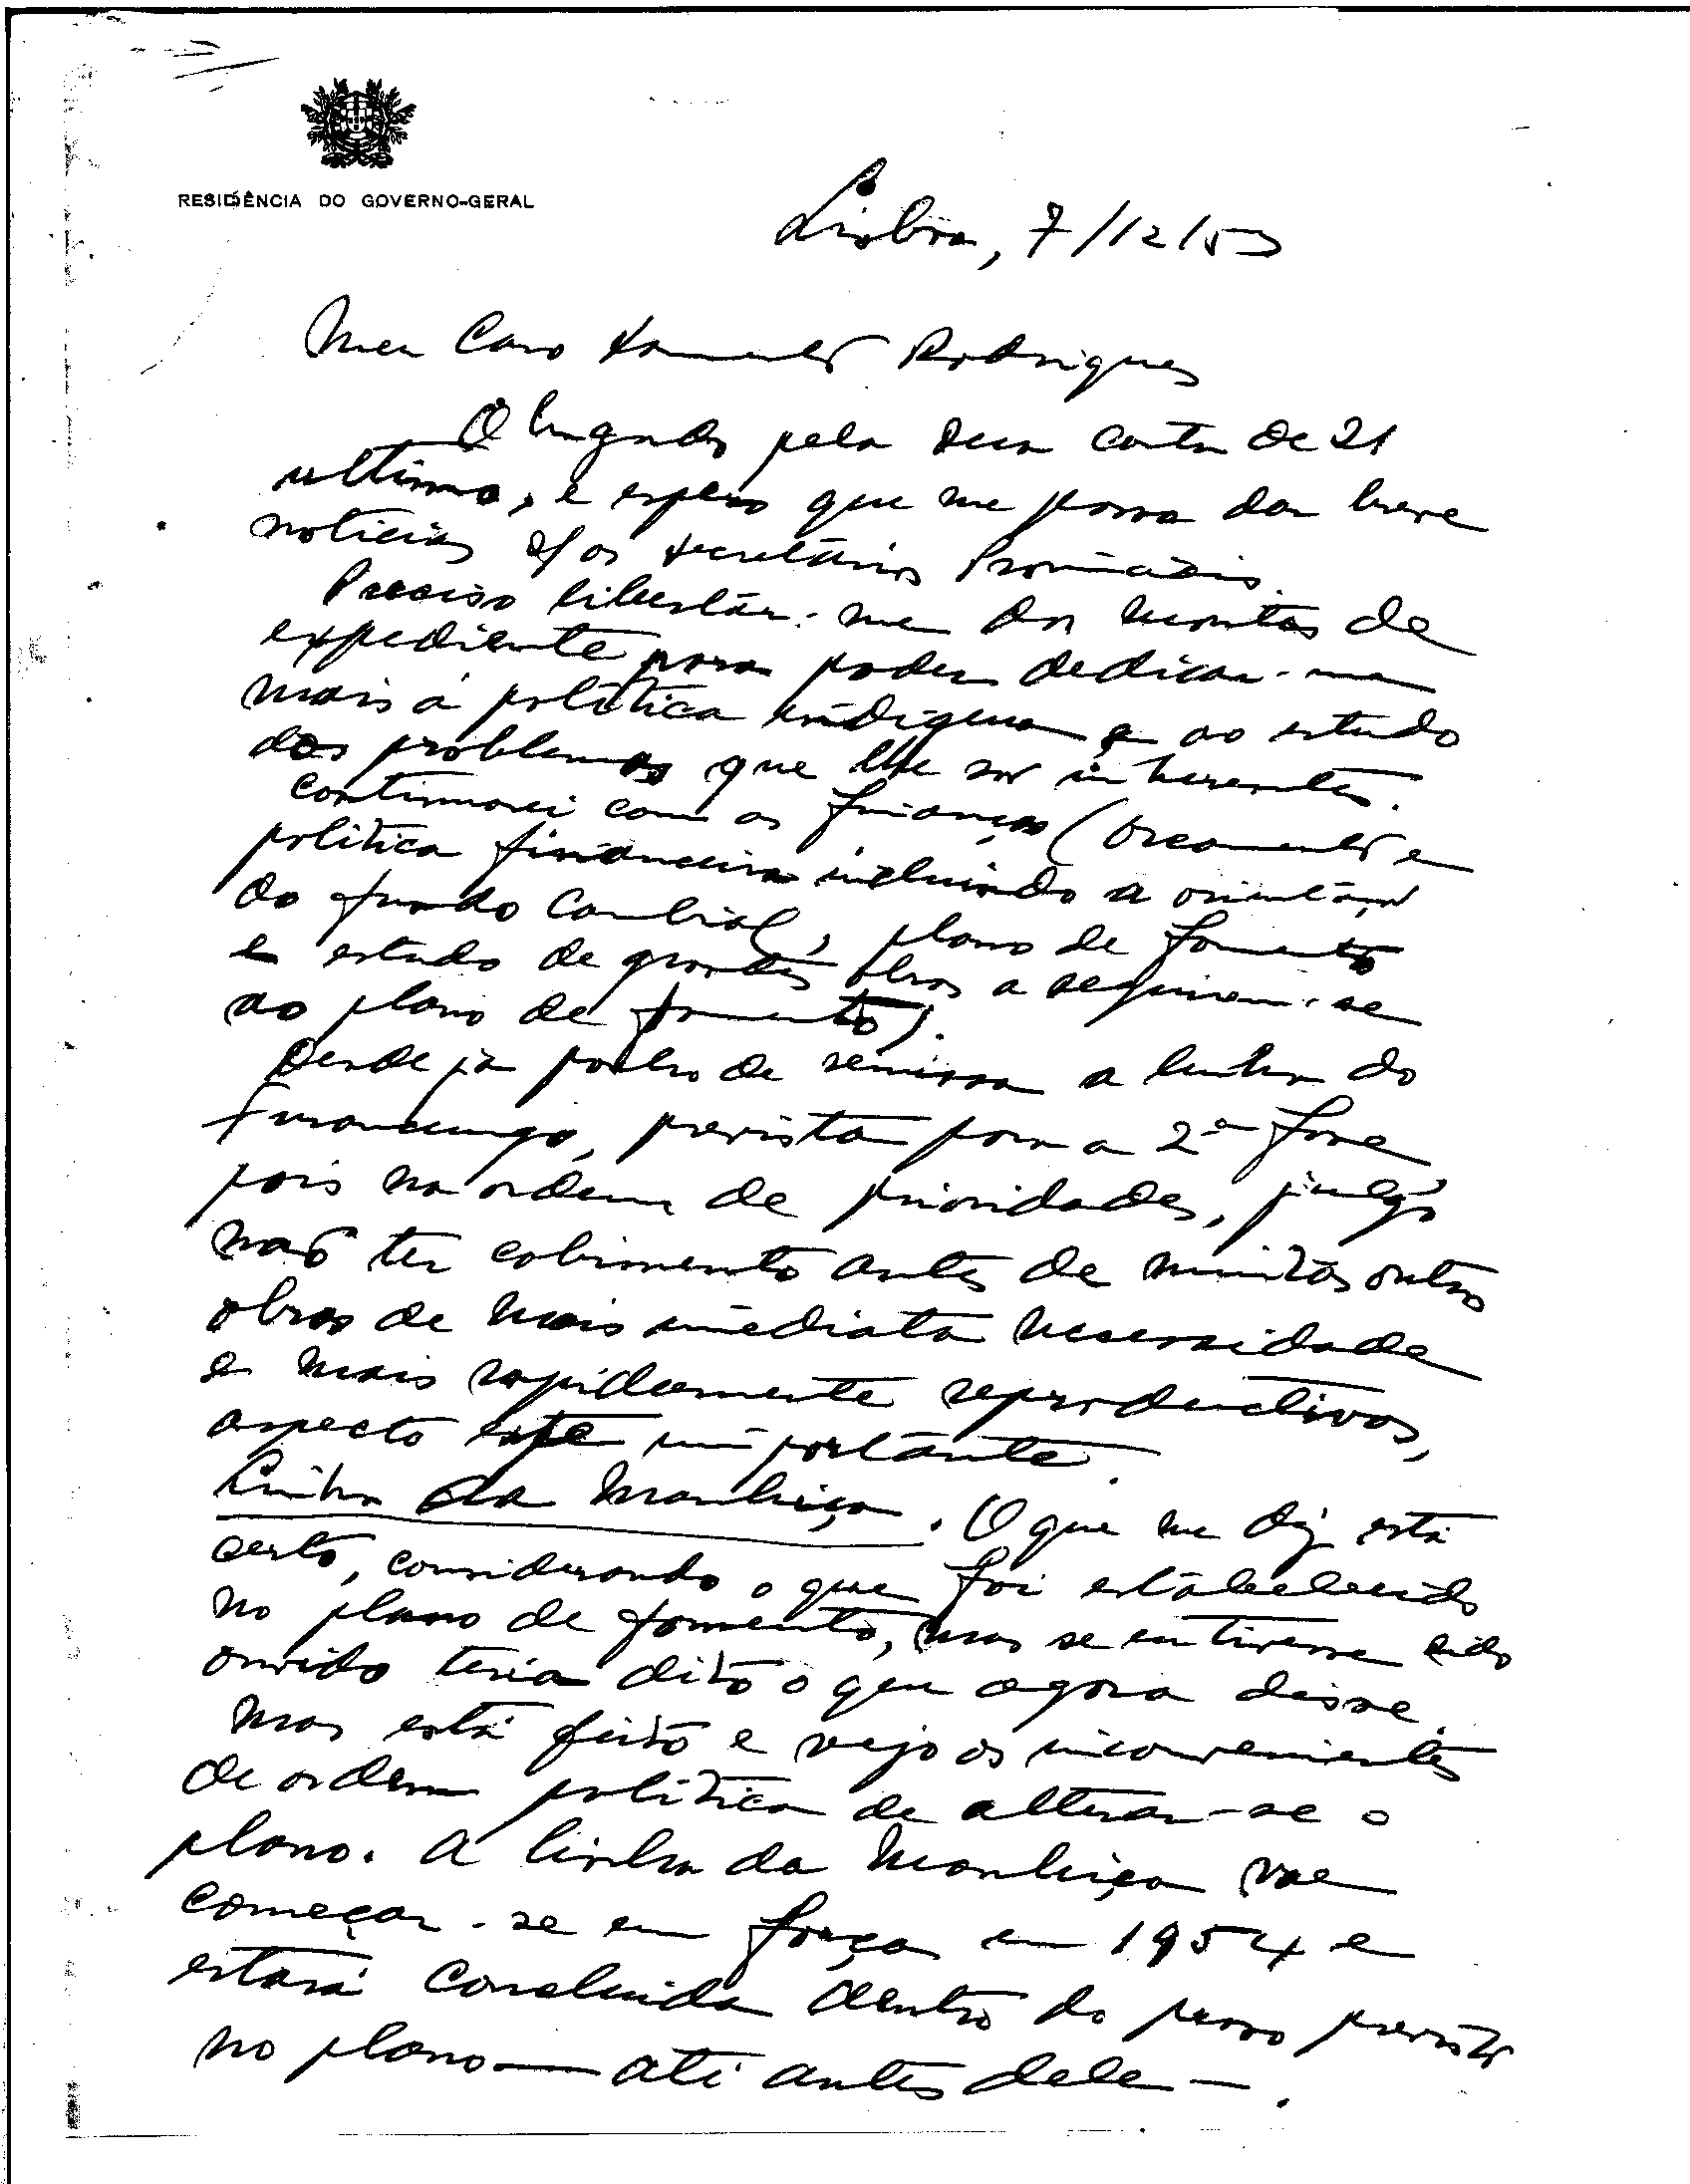 RESIDÊNCIA DO GOVERNO-GERAL
Lisboa, 7/12/53
Meu Caro Sarmento Rodrigues
Obrigado pela sua carta de 21
ultimo, e espero que me possa dar breve
noticias s/ os secretários Provinciais.
Preciso libertar-me dos montes de
expediente para poder dedicar-me
mais á política indigena e ao estudo
dos problemas que lhe são inherentes.
Continuarei com as finanças (orcamento e
politica financeira incluindo a orientação
do fundo cambial, plano de fomento
e estudo de grandes obras a seguirem-se
ao plano de fomento).
Desde já ponho de remissa a linha do
Furancungo, prevista para a 2ª fase
pois na ordem de prioridades, julgo
não ter cabimento antes de muitas outras
obras de mais imediata necessidade
e mais rapidamente reproductivas,
aspecto este importante.
Linha da Manhiça. O que me diz está
certo, considerando o que foi estabelecido
no plano de fomento, mas se eu tivesse sido
ouvido teria dito o que agora disse.
Mas está feito e vejo os inconvenientes
de ordem política de alterar-se o
plano. A linha da Manhiça vae
começar-se em força em 1954 e
estará concluida dentro do prazo previsto
no plano — até antes dele —.